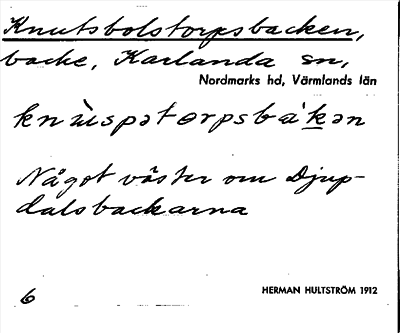 Knutsbolstorpsbacken,
backe, Karlanda sn,
Nordmarks hd, Värmlands län
knùspətorpsbákən
Något väster om Djup-
dalsbackarna
6
HERMAN HULTSTRÖM 1912